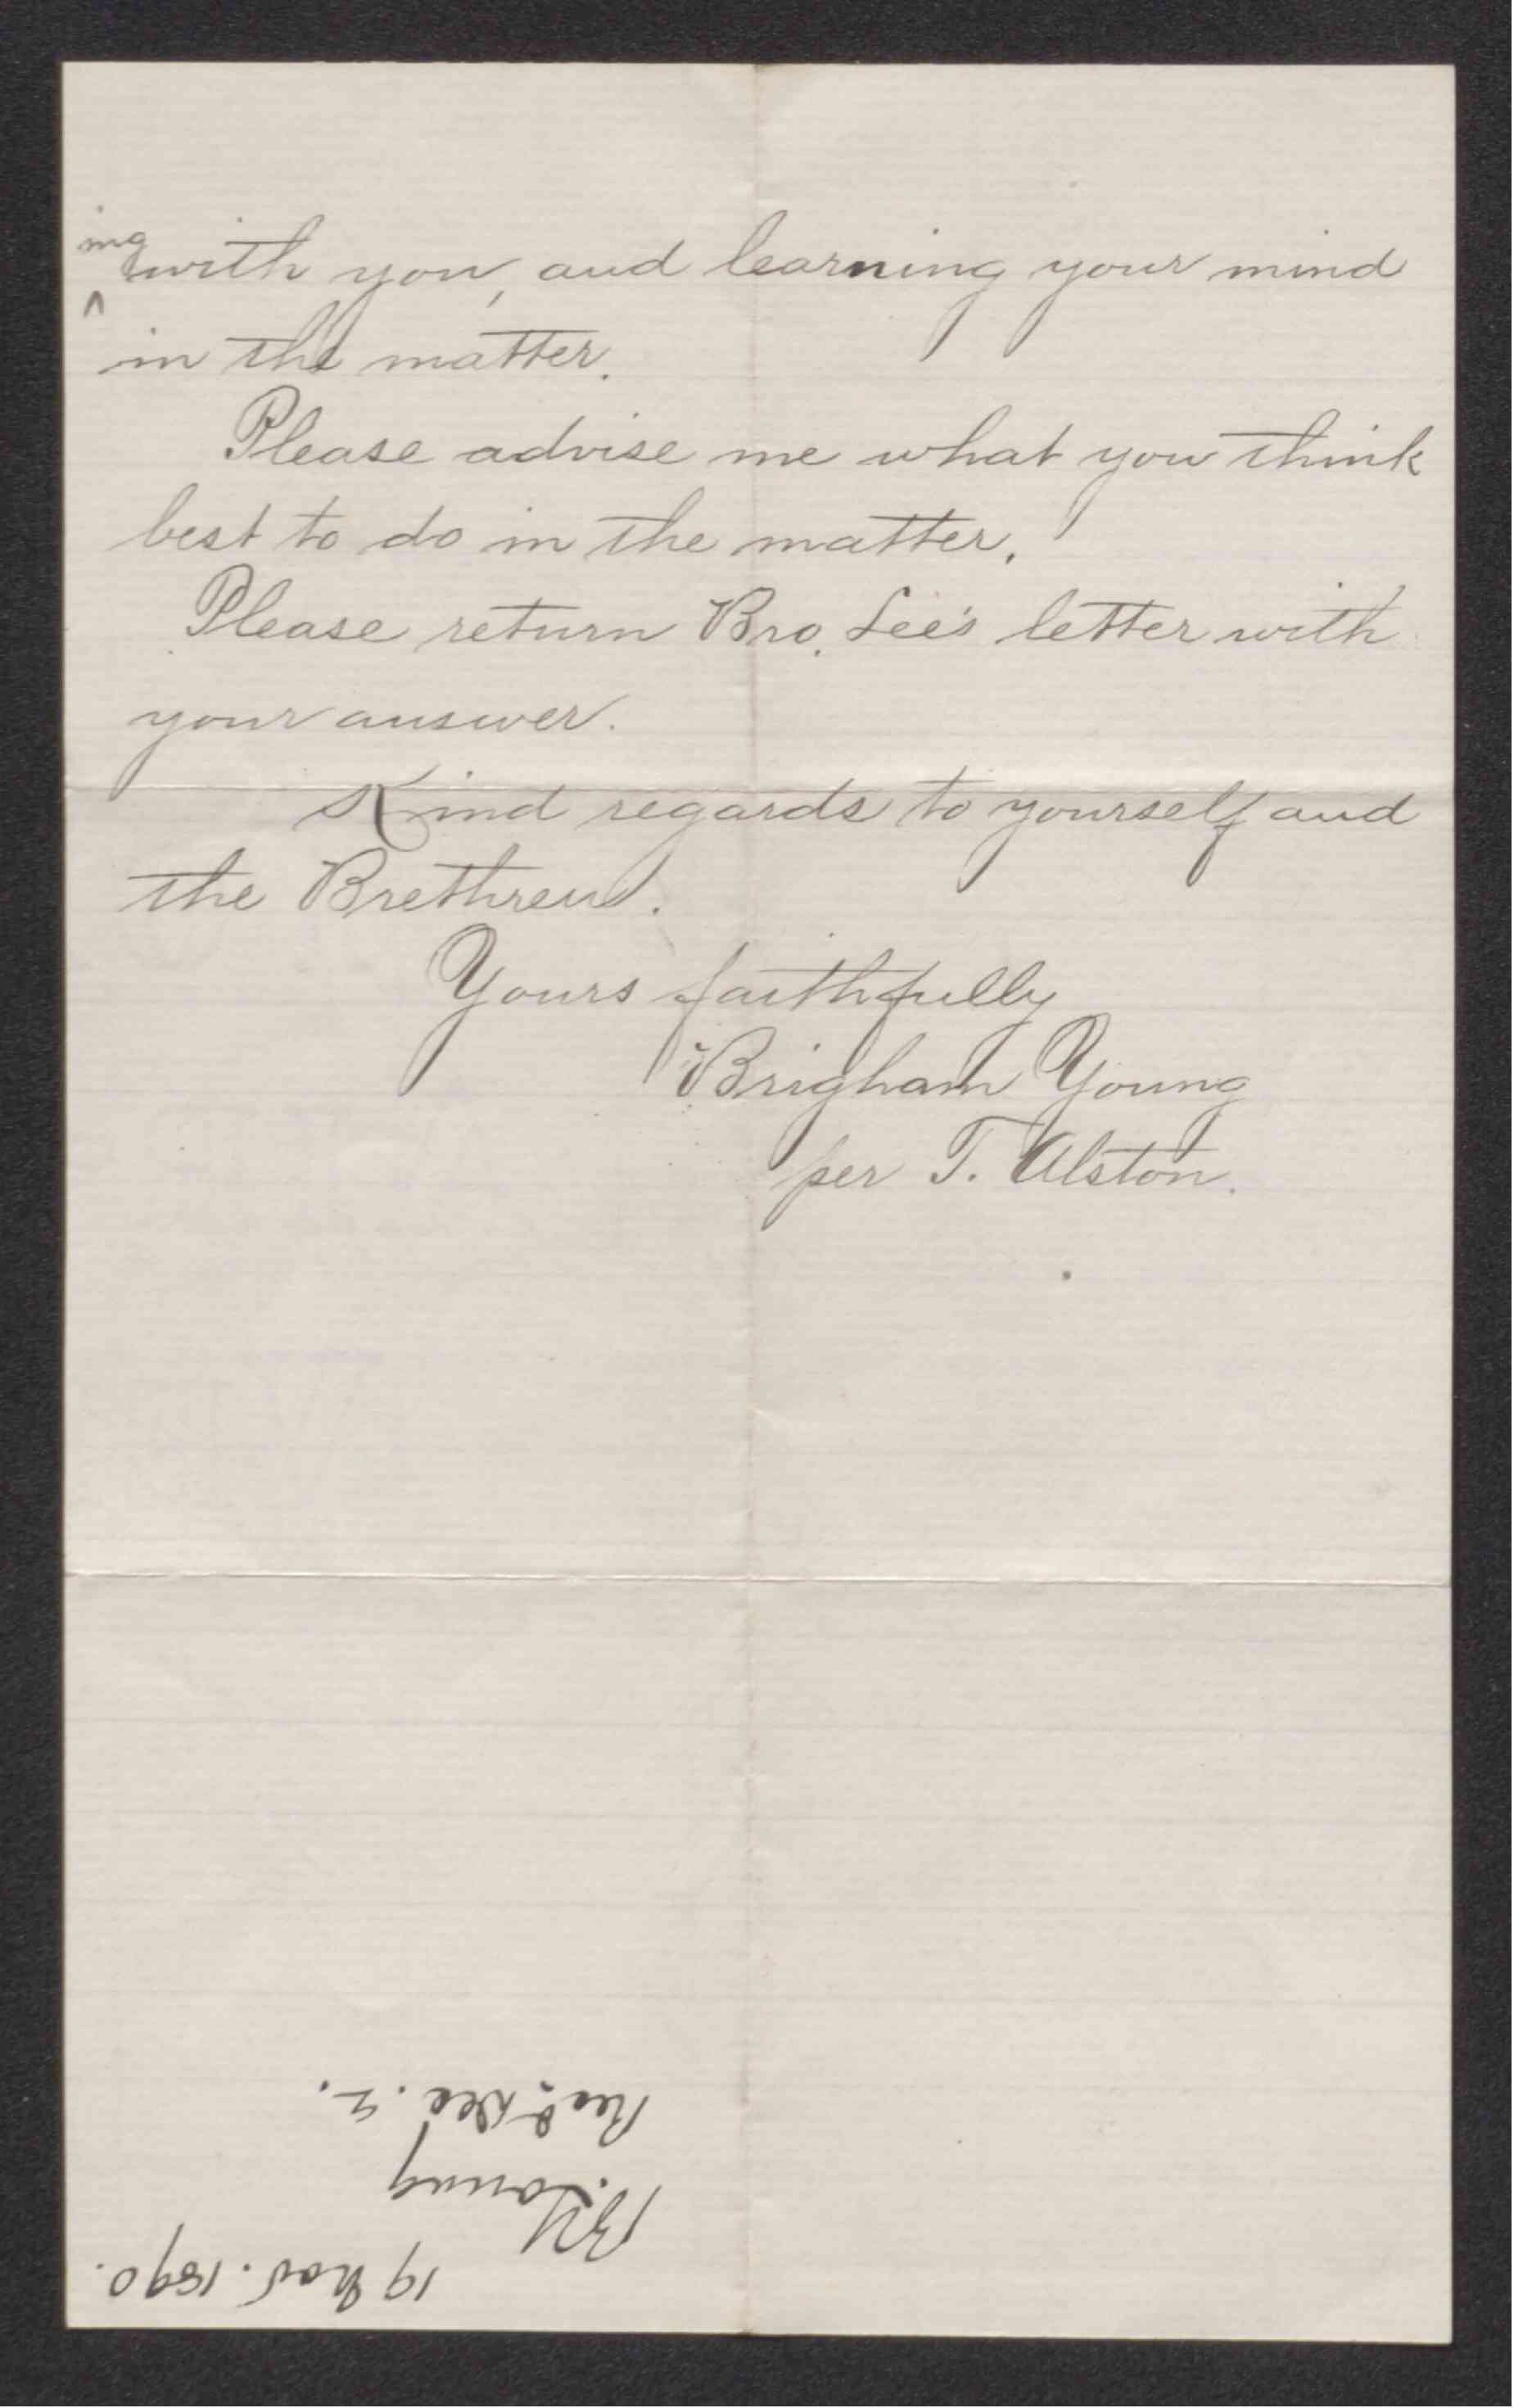 ing
with you, and learning your mind
in the matter.
Please advise me what you think
best to do in the matter.
Please return Bro. Lee's letter with
your answer.
Kind regards to yourself and
the Brethren.
Yours faithfully
Brigham Young
per T. Alston.
19 Nov. 1890.
B. Young
Recd Dec. 2.